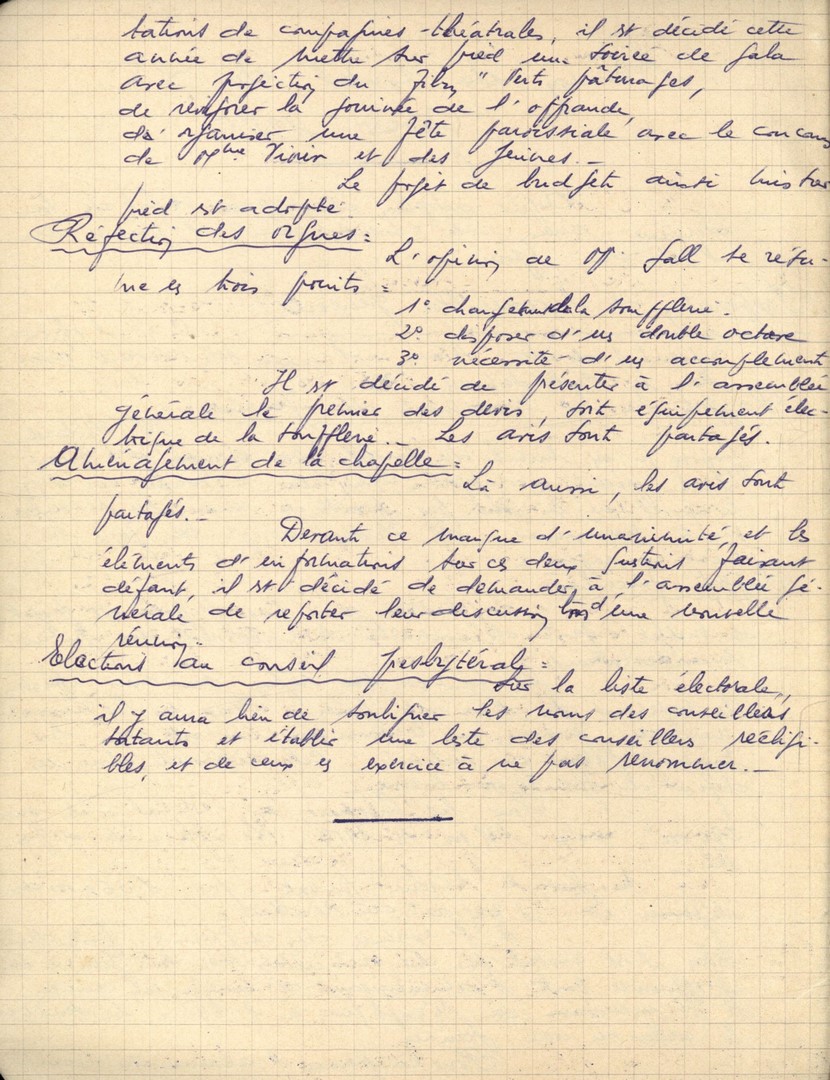 tations de compagnies théatrales, il est décidé cette
année de mettre sur pied une soirée de gala
avec projection du film "Verts pâturages,
de revigorer la journée de l'offrande,
d'organiser une fête paroissiale avec le concours
de Mme Vivien et des Jeunes._
Le projet de budget ainsi mis sur
pied est adopté.
Réfection des orgues =
L'opinion de M. Gall se résu-
me en trois points =
1° changement de la soufflerie.
2° disposer d'un double octave
3° nécessité d'un accomplement
Il est décidé de présenter à l'assemblée
générale le premier des devis, soit équipement élec-
trique de la soufflerie._ Les avis sont partagés.
Aménagement de la chapelle =
Là aussi, les avis sont
partagés._
Devant ce manque d'unanimité, et les
éléments d'informations sur ces deux questions faisant
défaut, il est décidé de demander à l'assemblée gé-
nérale de reporter leur discussion lors d'une nouvelle
réunion._
Elections au conseil presbytéral =
Sur la liste électorale,
il y aura lieu de souligner les noms des conseillers
sortants et établir une liste des conseillers rééligi-
bles, et de ceux en exercice à ne pas renommer._